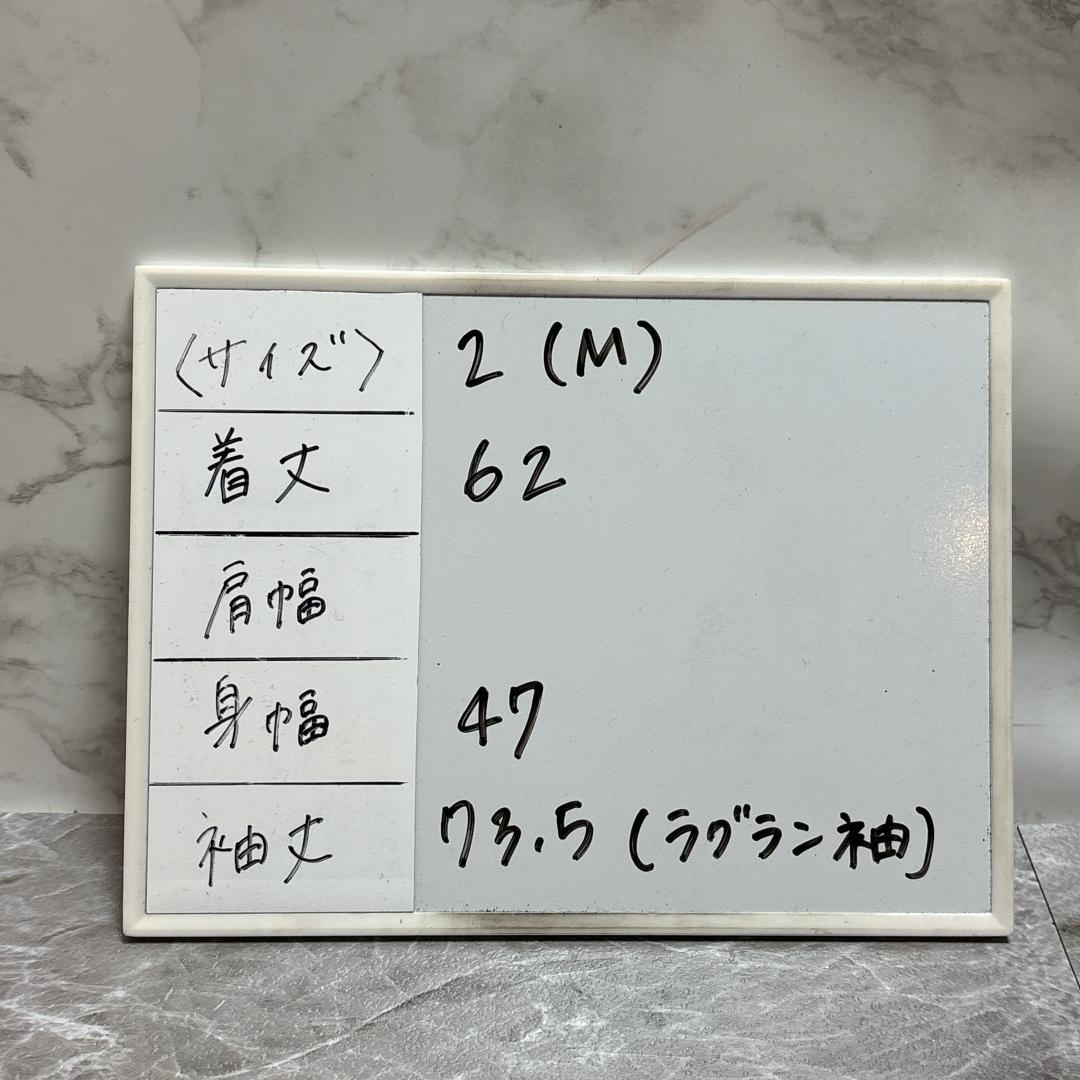 〈サイズ〉 2 (M)
着丈 62
肩幅
身幅 47
袖丈 73.5 (ラグラン袖)